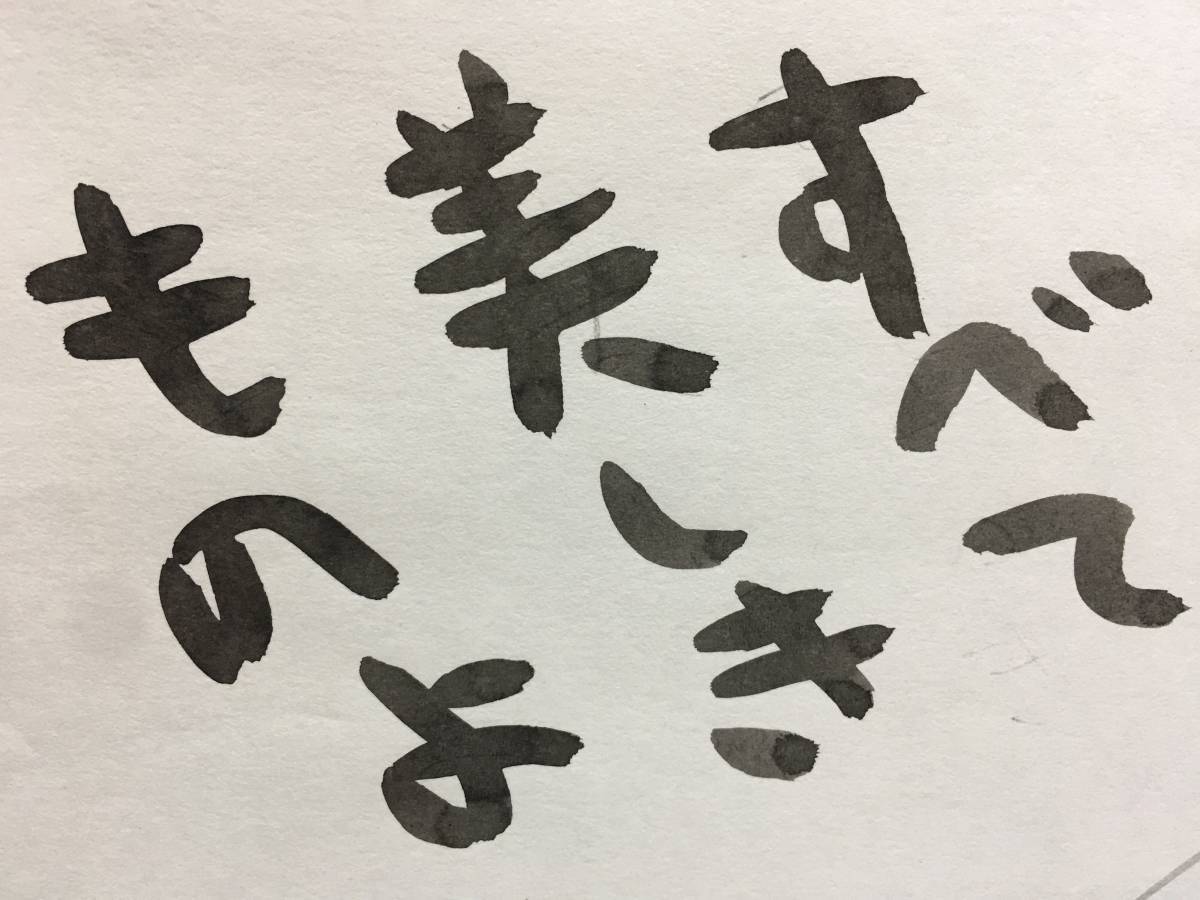 すべて
美しき
ものよ